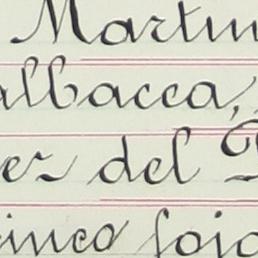 Martin
albacea,
er del
cinco foja